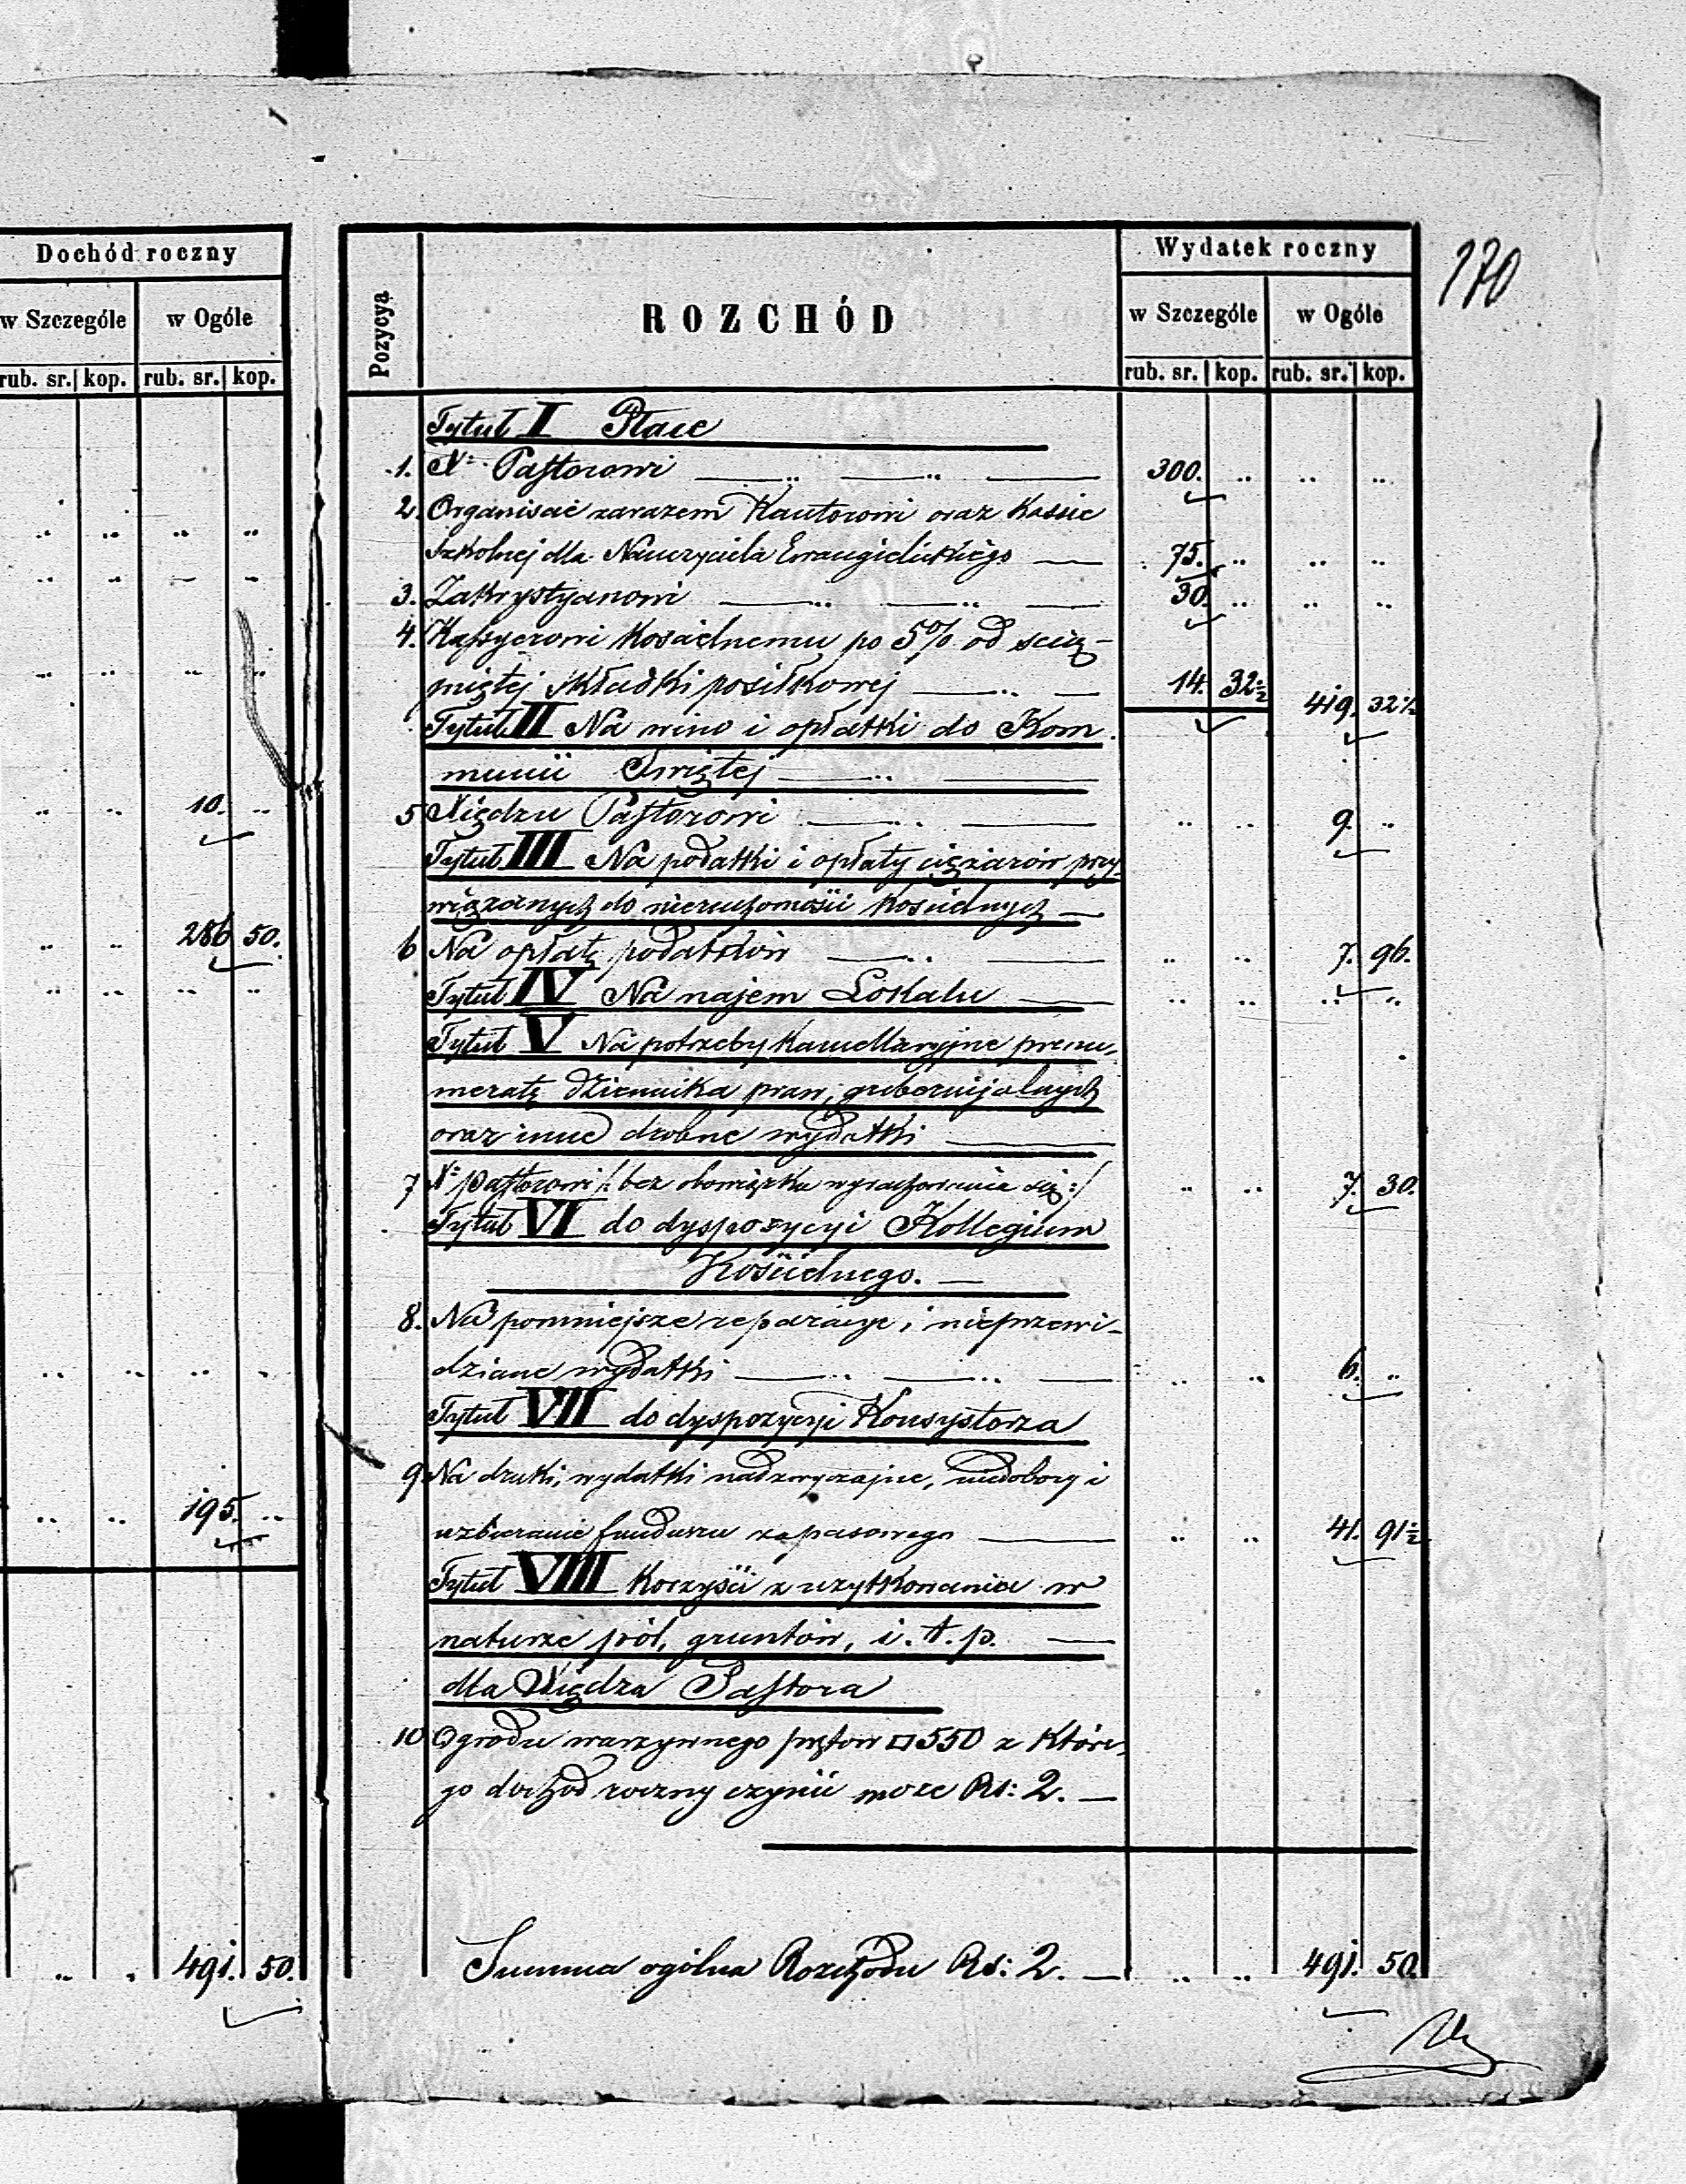 170
Dochód roczny
w Szczególe w Ogóle
rub. sr. kop. rub. sr. kop.
10. ..
286 50.
195. ..
491. 50.
Pozycya ROZCHÓD Wydatek roczny
w Szczególe w Ogóle
rub. sr. kop. rub. sr. kop.
Tytuł I Płace
1. X. Pastorowi 300. .. .. ..
2. Organiście zarazem Kantorowi oraz Kassie
Szkolnej dla Nauczyciela Ewangielickiego 75. .. .. ..
3. Zakrystyanowi 30. .. .. ..
4. Kassyerowi Kościelnemu po 5% od ściąg-
niętej składki posiłkowej 14. 32½ 419. 32½
Tytuł II Na wino i opłatki do Kom
munii Świętej
5 Xiędzu Pastorowi .. .. 9. ..
Tytuł III Na podatki i opłaty ciężarów przy
wiązanych do nieruchomości Kościelnych
6 Na opłatę podatków .. .. 7. 96.
Tytuł IV Na najem Lokalu .. .. .. ..
Tytuł V Na potrzeby Kancellaryjne prenu-
meratę dziennika praw, gubernijalnych
oraz inne drobne wydatki
7 X. Pastorowi /: bez obowiązku wyrachowania się :/ .. .. 7. 30.
Tytuł VI do dyspozycyi Kollegium
Kościelnego.
8. Na pomniejsze reparacye i nieprzewi-
dziane wydatki .. .. 6. ..
Tytuł VII do dyspozycyi Konsystorza
9 Na druki, wydatki nadzwyczajne, niedobory i
uzbieranie funduszu zapasowego .. .. 41. 91½
Tytuł VIII Korzyści z użytkowania w
naturze pól, gruntów, i. t. p.
dla Xiędza Pastora
10 Ogrodu warzywnego prętów □ 550 z które-
go dochód roczny czynić może Rs: 2.
Summa ogólna Rozchodu Rs: 2. .. .. 491. 50.